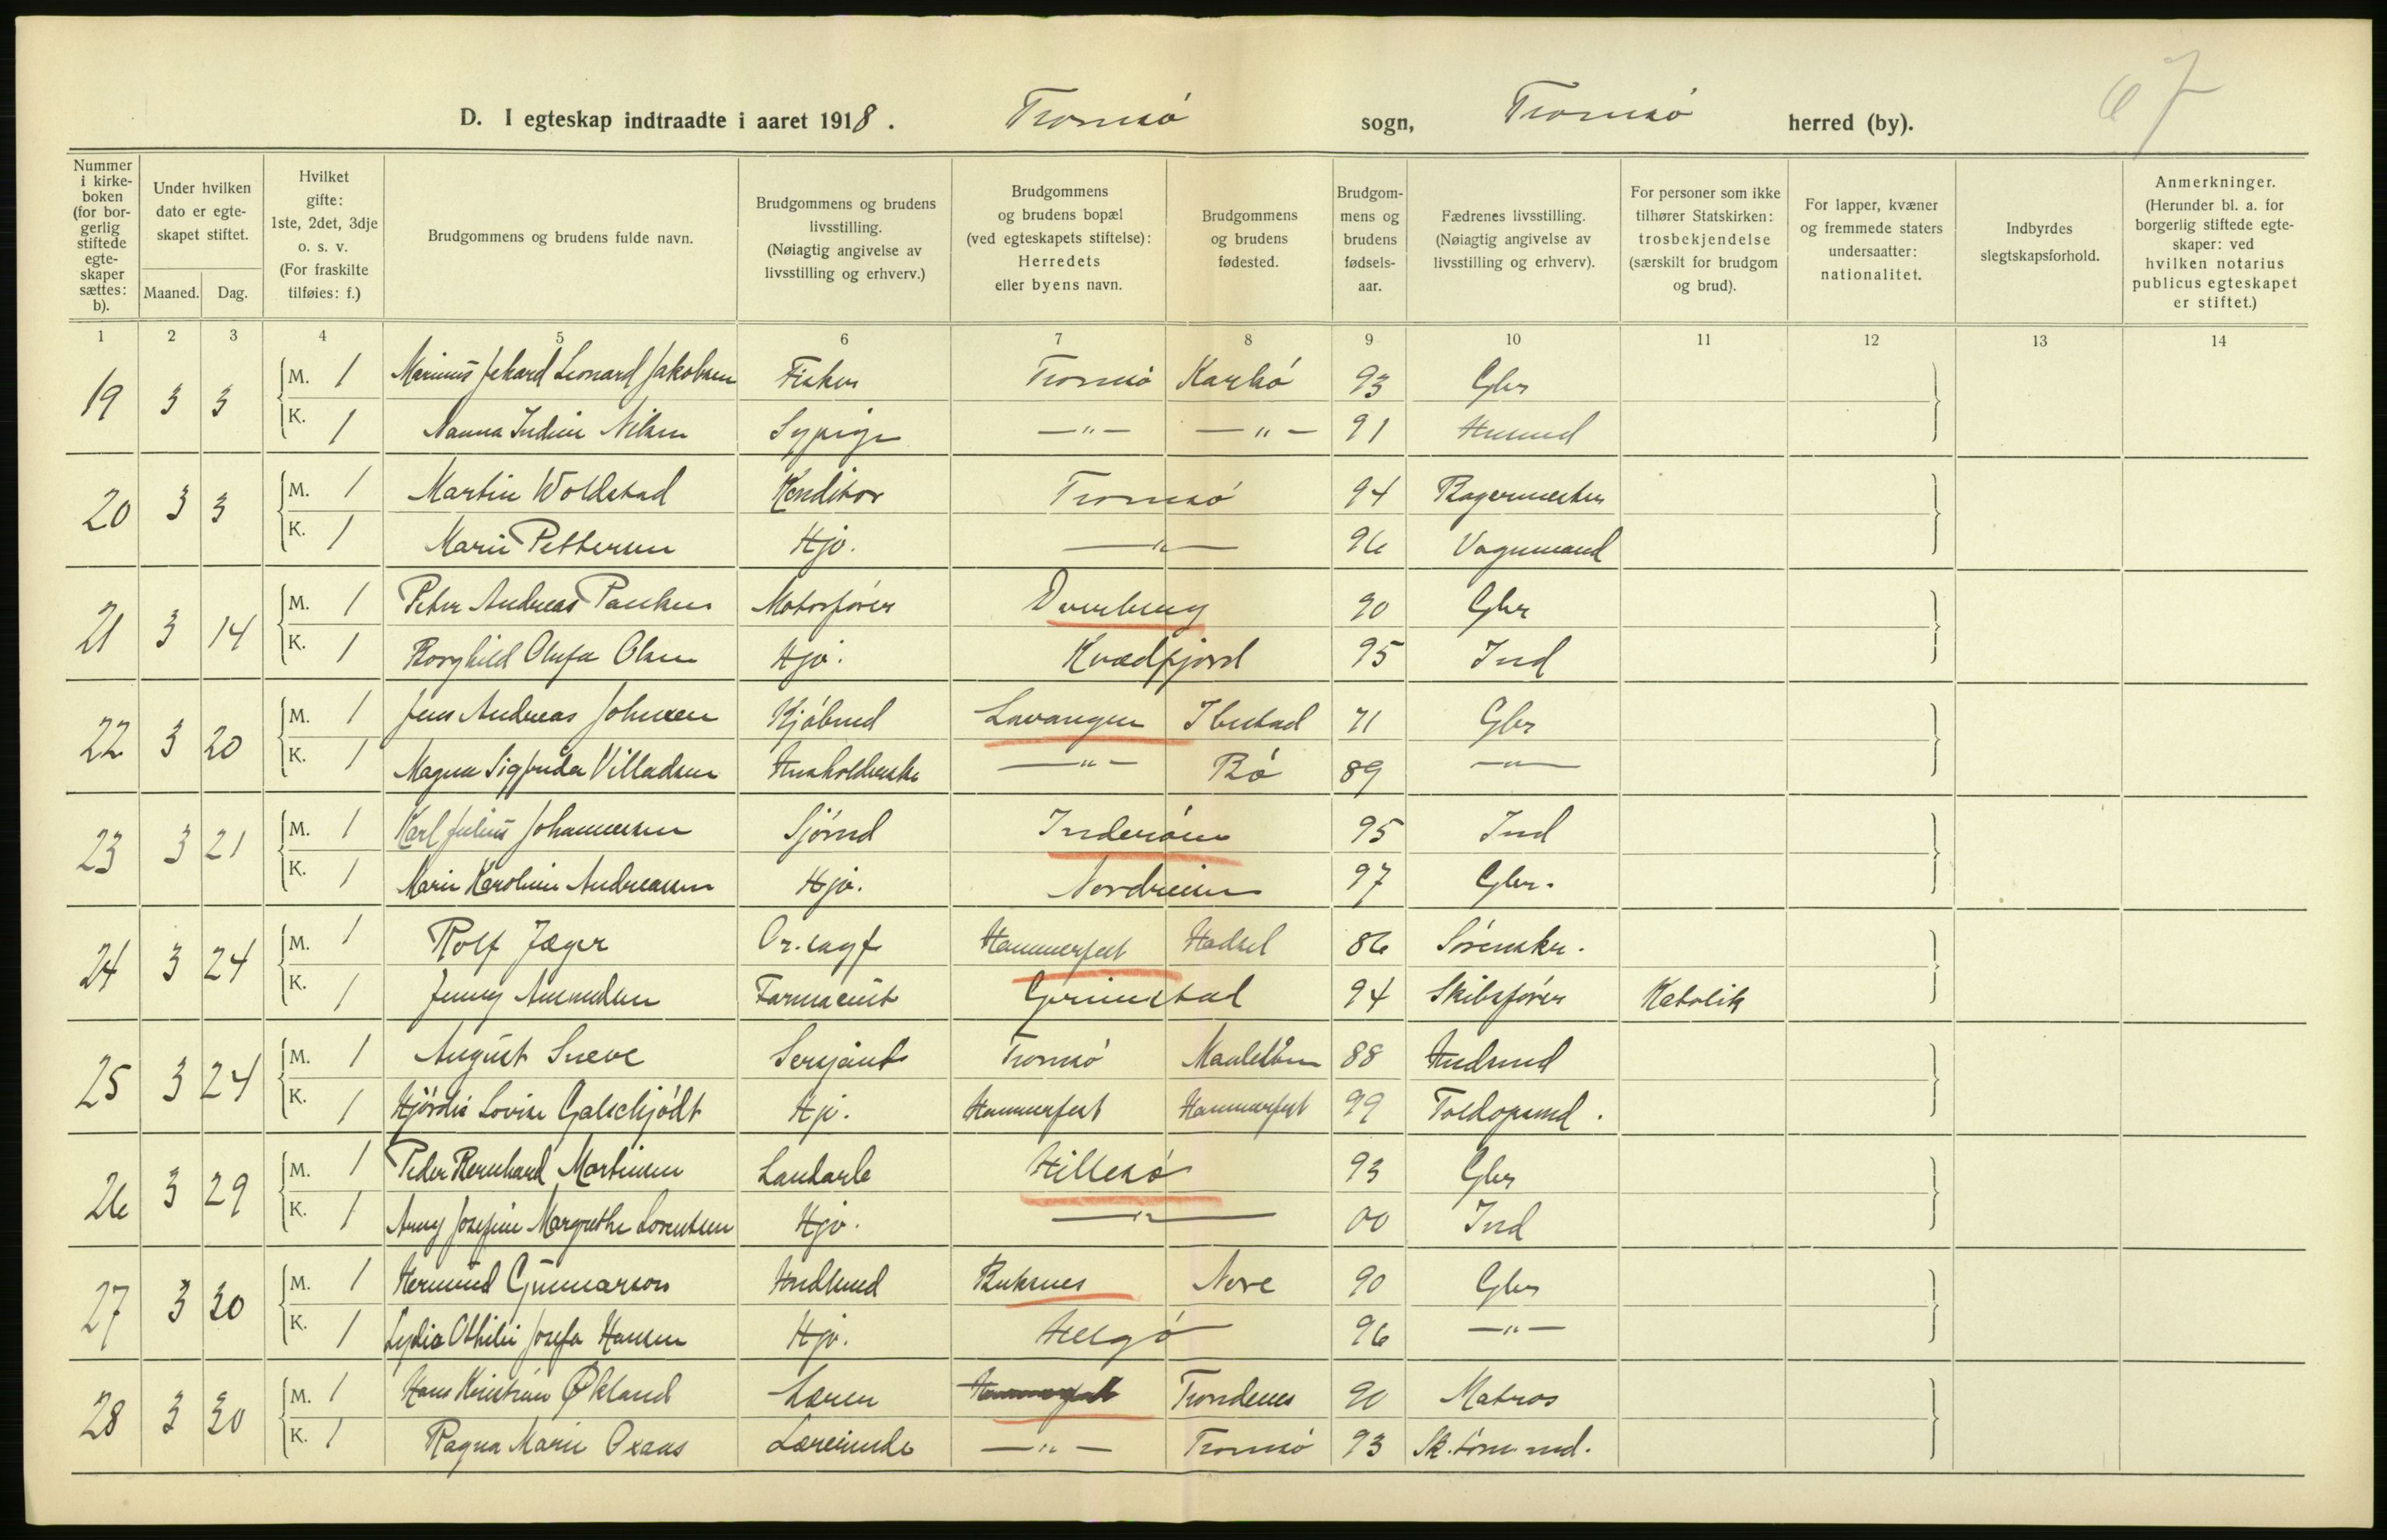 67
D. I egteskap indtraadte i aaret 1918. Tromsø sogn, Tromsø herred (by).
Nummer i kirkeboken (for borgerlig stiftede egteskaper sættes: b).
Under hvilken dato er egteskapet stiftet.
Maaned. Dag.
Hvilket gifte: 1ste, 2det, 3dje o. s. v. (For fraskilte tilføies: f.)
Brudgommens og brudens fulde navn.
Brudgommens og brudens livsstilling. (Nøiagtig angivelse av livsstilling og erhverv.)
Brudgommens og brudens bopæl (ved egteskapets stiftelse): Herredets eller byens navn.
Brudgommens og brudens fødested.
Brudgommens og brudens fødselsaar.
Fædrenes livsstilling. (Nøiagtig angivelse av livsstilling og erhverv).
For personer som ikke tilhører Statskirken: trosbekjendelse (særskilt for brudgom og brud).
For lapper, kvæner og fremmede staters undersaatter: nationalitet.
Indbyrdes slegtskapsforhold.
Anmerkninger. (Herunder bl. a. for borgerlig stiftede egteskaper: ved hvilken notarius publicus egteskapet er stiftet.)
1 2 3 4 5 6 7 8 9 10 11 12 13 14
19 3 3 M. 1 Marius Leonard Jakobsen Fisker Tromsø Karlsø 93 Gbr
K. 1 Nanna Indine Nilsen Sypige —"— —"— 91 Husmd
20 3 3 M. 1 Martin Woldstad Konditor Tromsø 94 Bagermester
K. 1 Marie Pettersen Hjv. —"— 96 Vognmand
21 3 14 M. 1 Peter Andreas Paulsen Motorfører Dverberg 90 Gbr
K. 1 Borghild Olufa Olsen Hjv. Kvædfjord 95 Ind
22 3 20 M. 1 Jens Andreas Johnsen Kjøbmd Lavangen Ibestad 71 Gbr
K. 1 Magna Sigfrida Villadsen Husholderske —"— Bø 89 —"—
23 3 21 M. 1 Karl Julius Johannesen Sjømd Inderøen 95 Ind
K. 1 Marie Karoline Andreasen Hjv. Nordreisen 97 Gbr.
24 3 24 M. 1 Rolf Jæger O.r.sagf Hammerfest Hadsel 86 Sorenskr.
K. 1 Jenny Amundsen Farmaceut Grimstad 94 Skibsfører Katolik
25 3 24 M. 1 August Sneve Sersjant Tromsø 88 Hndsmd
K. 1 Hjørdis Lovise Galschjødt Hjv. Hammerfest Hammerfest 99 Toldopsmd.
26 3 29 M. 1 Peder Bernhard Martinsen Landarb Hillesø 93 Gbr
K. 1 Anny Josefine Margrethe Lorentsen Hjv. —"— 00 Ind
27 3 30 M. 1 Hermund Gunnarson Hndlsmd Buksnes Nore 90 Gbr
K. 1 Lydia Othilie Josefa Hansen Hjv. Helgø 96 —"—
28 3 30 M. 1 Hans Kristian Økland Lærer Hammerfest Trondenes 90 Matros
K. 1 Ragna Marie Oxaas Lærerinde —"— Tromsø 93 Sk.tømmmd.